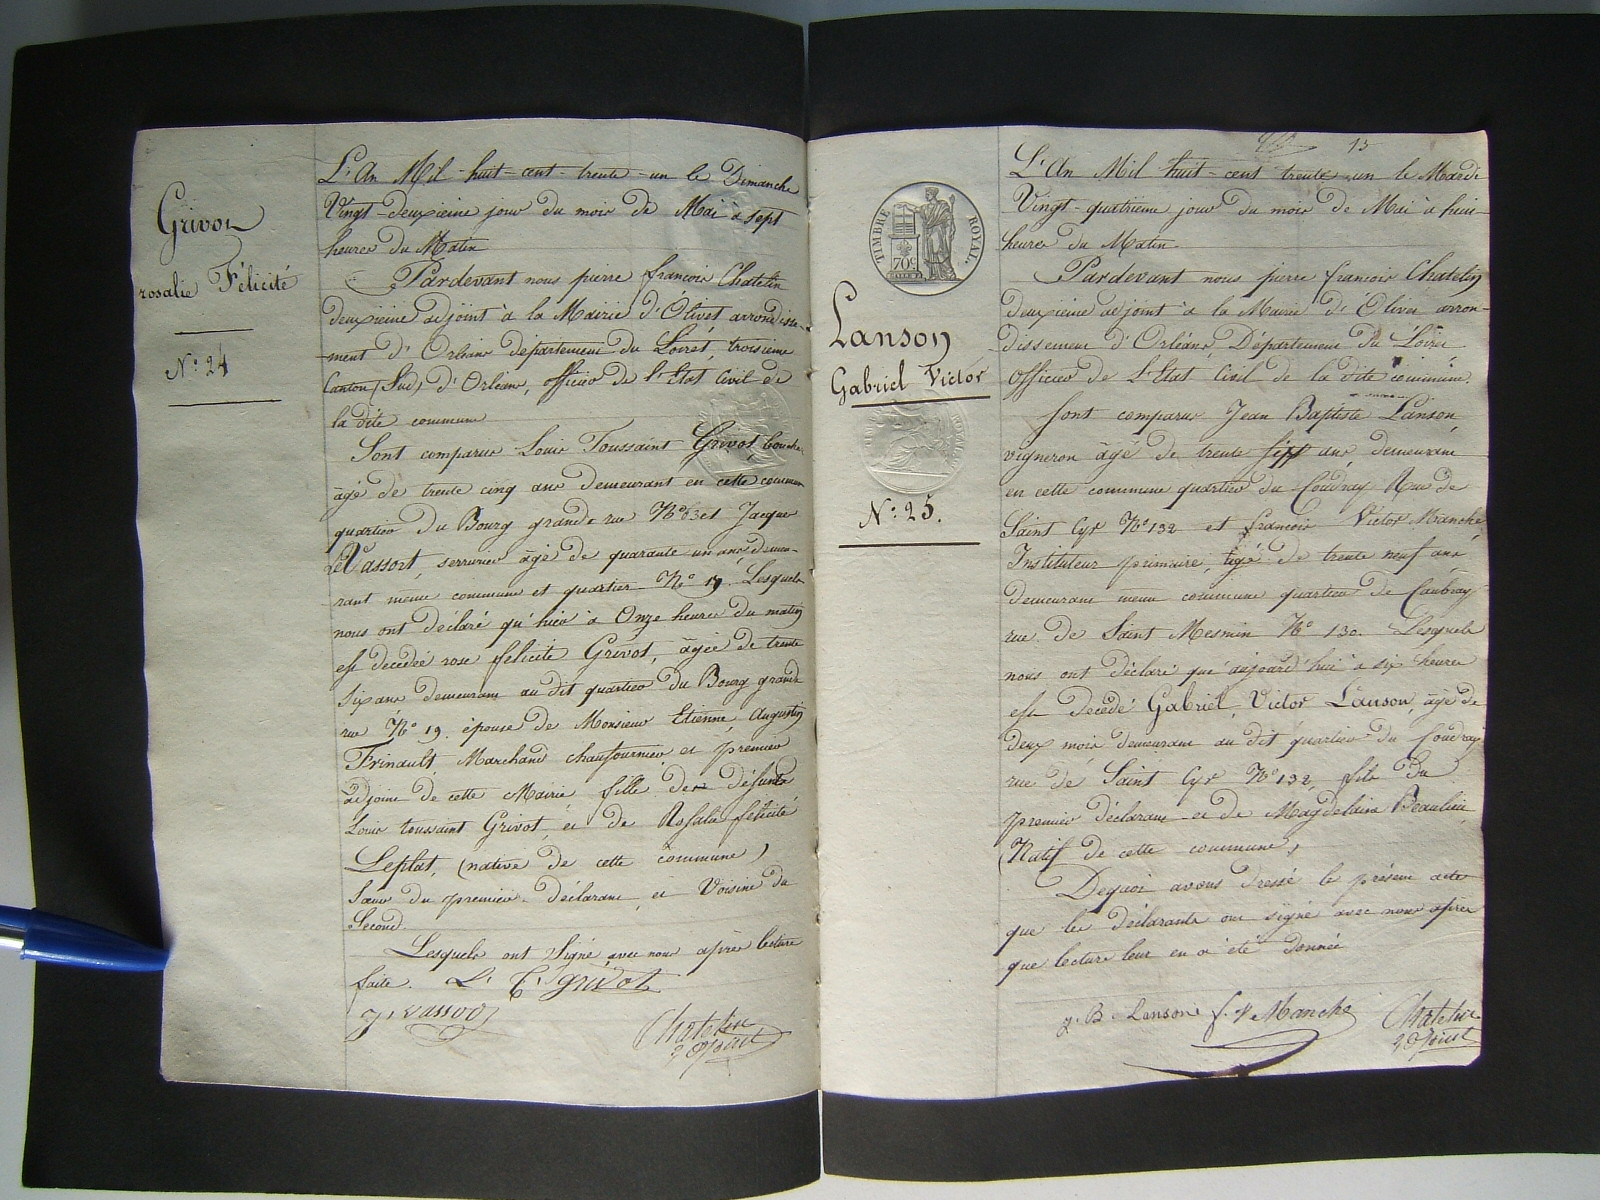 Grivot
rosalie Félicité
N° 24
L'An Mil-huit-cent-trente-un le Dimanche
Vingt-deuxieme jour du mois de Mai à sept
heures du Matin
Pardevant nous pierre françois Chatelin
deuxieme adjoint à la Mairie d'Olivet arrondisse-
-ment d'Orléans département du Loiret, troisieme
Canton (Sud) d'Orléans, officier de l'Etat Civil de
la dite commune
Sont comparus Louis Toussaint Grivot, boucher
âgé de trente cinq ans demeurant en cette commune
quartier du Bourg grande rue N° 63 et Jacques
LeVassort, serrurier âgé de quarante un ans demeu-
rant meme commune et quartier N° 17. Lesquels
nous ont déclaré qu'hier à Onze heures du matin
est decedée rose félicité Grivot, âgée de trente
six ans demeurant au dit quartier du Bourg grande
rue N° 19. épouse de Monsieur Etienne Augustin
Frinault, Marchand chaufournier, et premier
adjoint de cette Mairie fille des défunts
Louis toussaint Grivot, et de Rosalie félicité
Leplat, (native de cette commune)
Sœur du premier déclarant, et Voisine du
Second.
Lesquels ont signé avec nous après lecture
faite. L. T. grivot
J. Vassort
Chatelin
2e adjoint
13
TIMBRE ROYAL.
70c
Lanson
Gabriel Victor
N° 25.
L'An Mil huit-cent trente-un le Mardi
Vingt-quatrieme jour du mois de Mai à huit
heures du Matin.
Pardevant nous pierre françois Chatelin
deuxieme adjoint à la Mairie d'Olivet arron-
dissement d'Orléans, Département du Loiret
Officier de L'Etat Civil de la dite commune.
Sont comparus Jean Baptiste Lanson,
vigneron âgé de trente ans demeurant
en cette commune quartier du Coudray Rue de
Saint Cyr N° 132 et françois Victor Manché,
Instituteur primaire, âgé de trente neuf ans
demeurant meme commune quartier de Caubray
rue de Saint Mesmin N° 130. Lesquels
nous ont déclaré que aujourd'hui à six heures
est décédé Gabriel, Victor Lanson, âgé de
deux mois demeurant au dit quartier du Coudray
rue de Saint Cyr N° 132, fils du
premier déclarant et de Magdelaine Beaulieu,
(Natif de cette commune)
Dequoi avons dressé le présent acte
que les déclarants ont signé avec nous après
que lecture leur en a été donnée
J. B. Lanson f. V Manché
Chatelin
2e adjoint